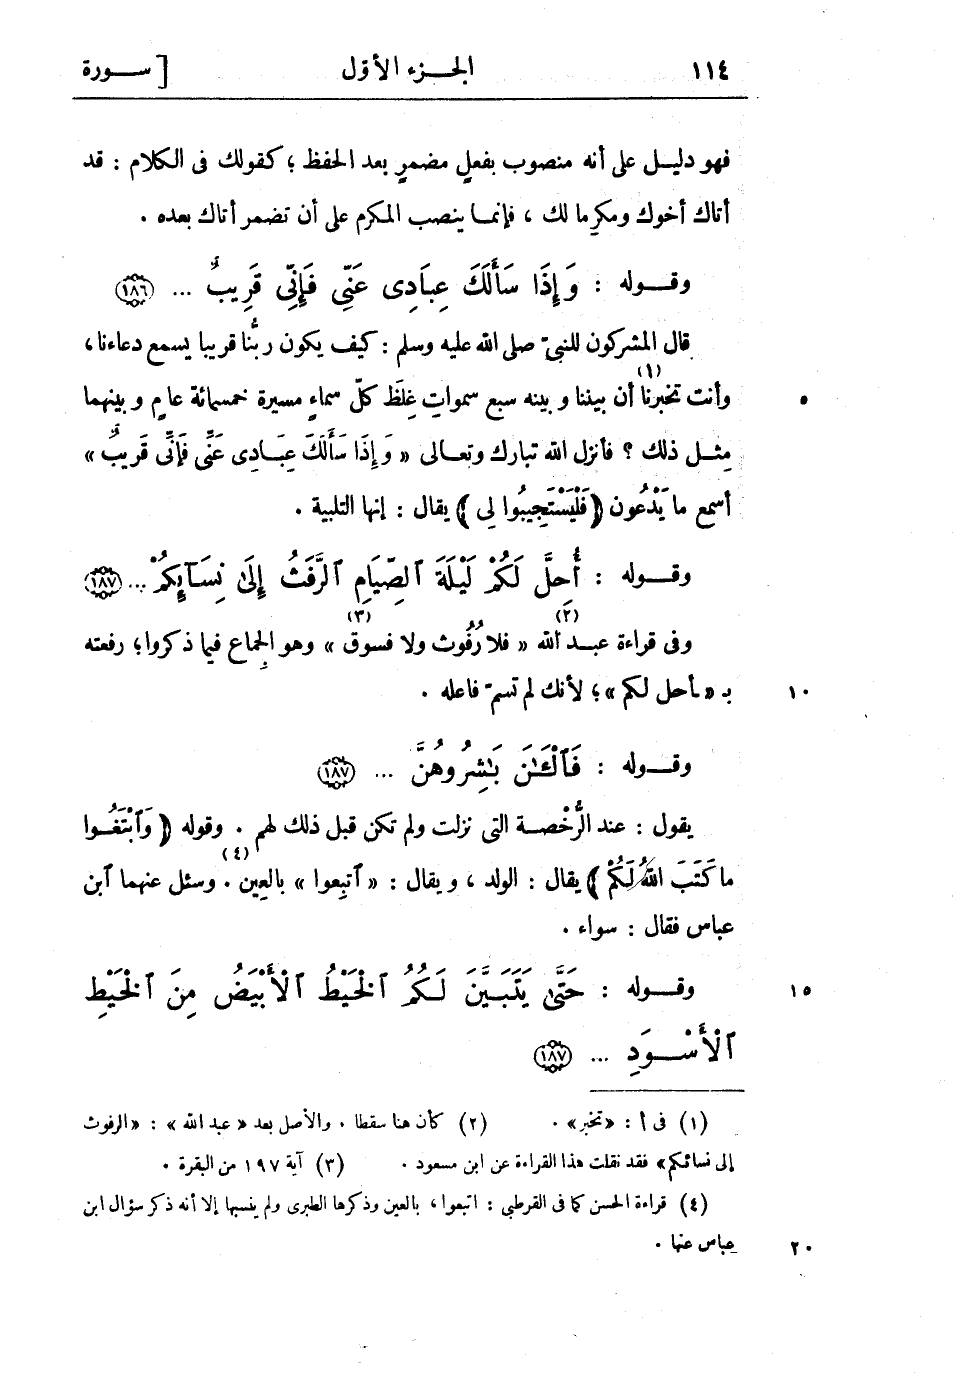 ١١٤ الجزء الأوّل [سورة
فهو دليل على أنه منصوب بفعل مضمر بعد الحفظ ؛ كقولك فى الكلام : قد
أتاك أخوك ومكرما لك ، فإنما ينصب المكرم على أن تضمر أتاك بعده .
وقوله : وَإِذَا سَأَلَكَ عِبَادِى عَنِّى فَإِنِّى قَرِيبٌ ... (١٨٦)
قال المشركون للنبىّ صلى الله عليه وسلم : كيف يكون ربُّنا قريبا يسمع دعاءنا ،
وأنت تخبرنا (١) أن بيننا وبينه سبع سمواتٍ غِلَظ كلّ سماءٍ مسيرة خمسمائة عامٍ وبينهما ٥
مِثل ذلك ؟ فأنزل الله تبارك وتعالى « وَإِذَا سَأَلَكَ عِبَادِى عَنِّى فَإِنِّى قَرِيبٌ »
أسمع ما يَدْعُون ﴿ فَلْيَسْتَجِيبُوا لِى ﴾ يقال : إنها التلبية .
وقوله : أُحِلَّ لَكُمْ لَيْلَةَ ٱلصِّيَامِ ٱلرَّفَثُ إِلَىٰ نِسَآئِكُمْ ... (١٨٧)
وفى قراءة عبد الله (٢) « فلا رُفُوث ولا فسوق » (٣) وهو الجِماع فيما ذكروا ؛ رفعته
بـ « أحل لكم » ؛ لأنك لم تسمّ فاعله . ١٠
وقوله : فَٱلْـَٰٔنَ بَٰشِرُوهُنَّ ... (١٨٧)
يقول : عند الرُّخصة التى نزلت ولم تكن قبل ذلك لهم . وقوله ﴿ وَٱبْتَغُوا
ما كَتَبَ اللهُ لَكُمْ ﴾ يقال : الولد ، ويقال : « ٱتبِعوا » بالعين (٤) . وسئل عنهما ٱبن
عباس فقال : سواء .
وقوله : حَتَّىٰ يَتَبَيَّنَ لَكُمُ ٱلْخَيْطُ ٱلْأَبْيَضُ مِنَ ٱلْخَيْطِ ١٥
ٱلْأَسْوَدِ ... (١٨٧)
(١) فى أ : «تخبر» . (٢) كأن هنا سقطا . والأصل بعد « عبد الله » : «الرفوث
إلى نسائكم» فقد نقلت هذا القراءة عن ابن مسعود . (٣) آية ١٩٧ من البقرة .
(٤) قراءة الحسن كما فى القرطبى : اتبعوا ، بالعين وذكرها الطبرى ولم ينسبها إلا أنه ذكر سؤال ابن
عباس عنها . ٢٠